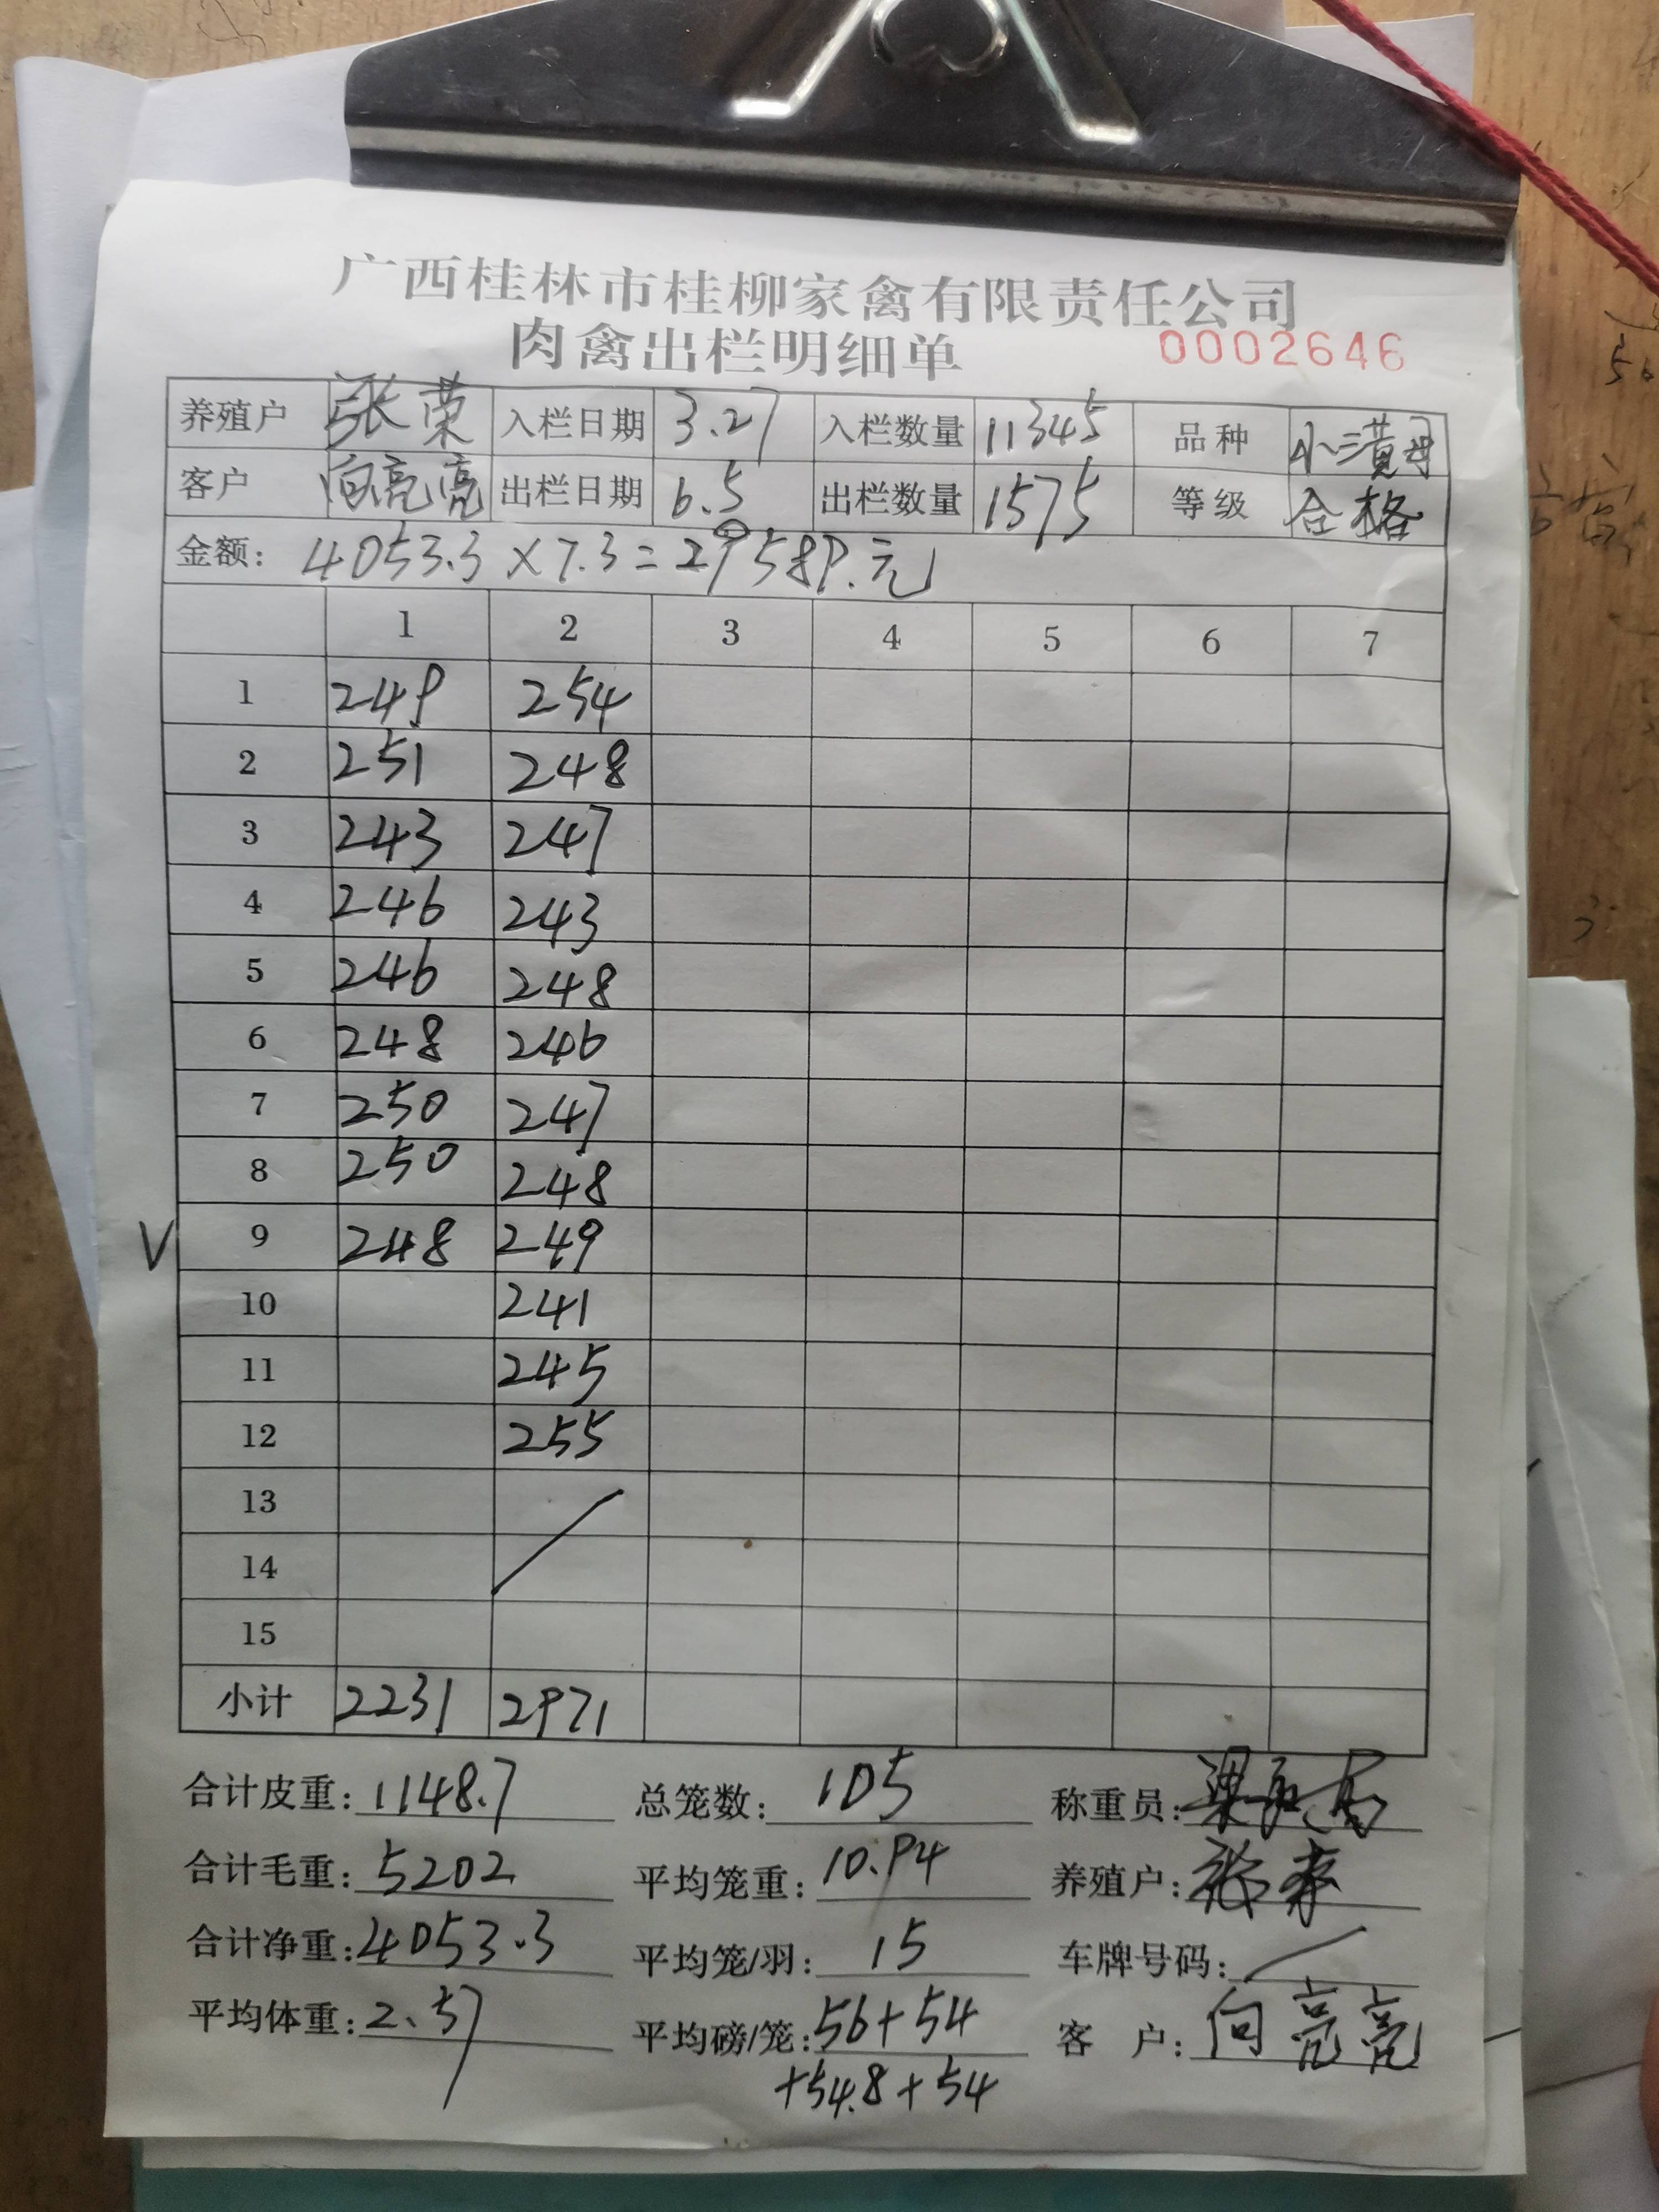 广西桂林市桂柳家禽有限责任公司
肉禽出栏明细单 0002646
养殖户 张荣 入栏日期 3.27 入栏数量 11345 品种 小三黄母
客户 向亮亮 出栏日期 6.5 出栏数量 1575 等级 合格
金额: 4053.3×7.3=29589.元
1 2 3 4 5 6 7
1 249 254
2 251 248
3 243 247
4 246 243
5 246 248
6 248 246
7 250 247
8 250 248
V 9 248 249
10 241
11 245
12 255
13
14
15
小计 2231 2971
合计皮重: 1148.7 总笼数: 105 称重员:
合计毛重: 5202 平均笼重: 10.94 养殖户: 张荣
合计净重: 4053.3 平均笼/羽: 15 车牌号码:
平均体重: 2.57 平均磅/笼: 56+54 客户: 向亮亮
+54.8+54